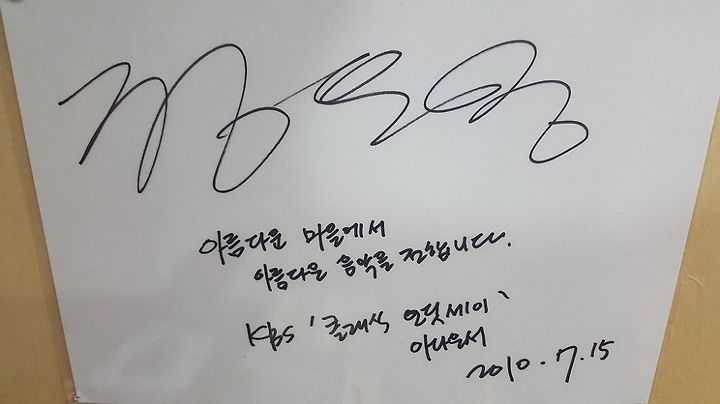 아름다운 마을에서
아름다운 음악을 전합니다.
KBS '클래식 오딧세이'
아나운서
2010. 7. 15